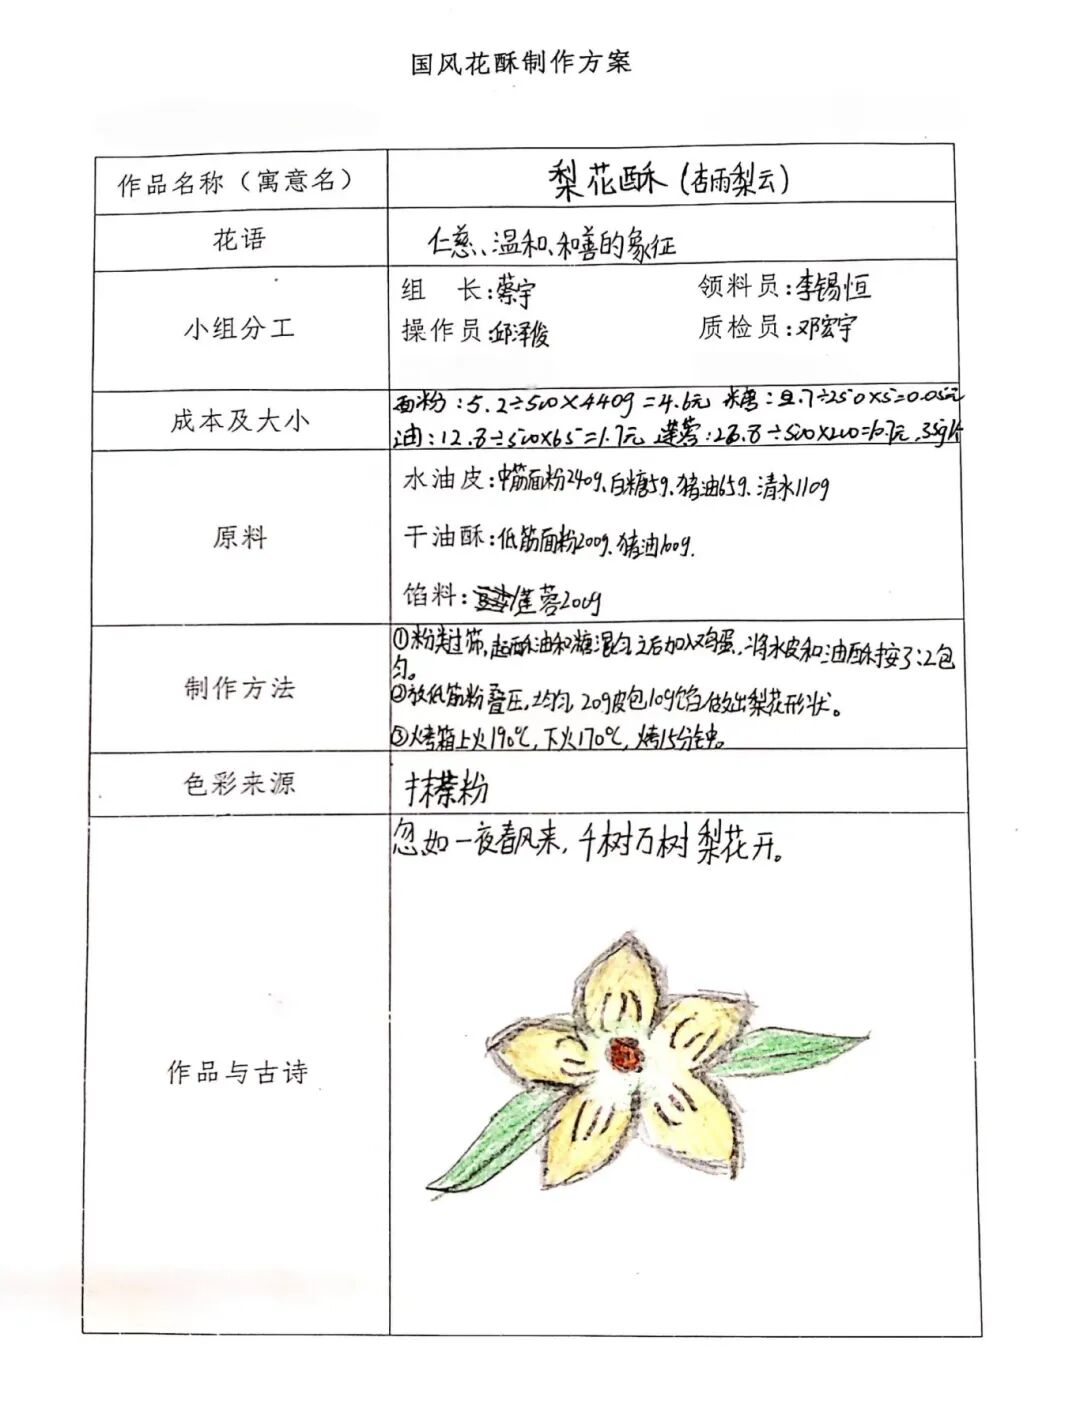 国风花酥制作方案
作品名称（寓意名）
梨花酥（杏雨梨云）
花语
仁慈、温和、和善的象征
小组分工
组 长：蔡宇 领料员：李锡恒
操作员：邱泽俊 质检员：邓宏宇
成本及大小
面粉：5.2÷500×440g=4.6元 糖：2.7÷250×5=0.05元
油：12.8÷500×65=1.7元 莲蓉：26.8÷500×200=10.7元，35g/个
原料
水油皮：中筋面粉240g、白糖5g、猪油65g、清水110g
干油酥：低筋面粉200g、猪油100g.
馅料：莲蓉200g
制作方法
①粉类过筛，起酥油和糖混匀之后加入鸡蛋，将水皮和油酥按3:2包
匀。
②放低筋粉叠压，均匀，20g皮包10g馅，做出梨花形状。
③烤箱上火190℃，下火170℃，烤15分钟。
色彩来源
抹茶粉
忽如一夜春风来，千树万树梨花开。
作品与古诗